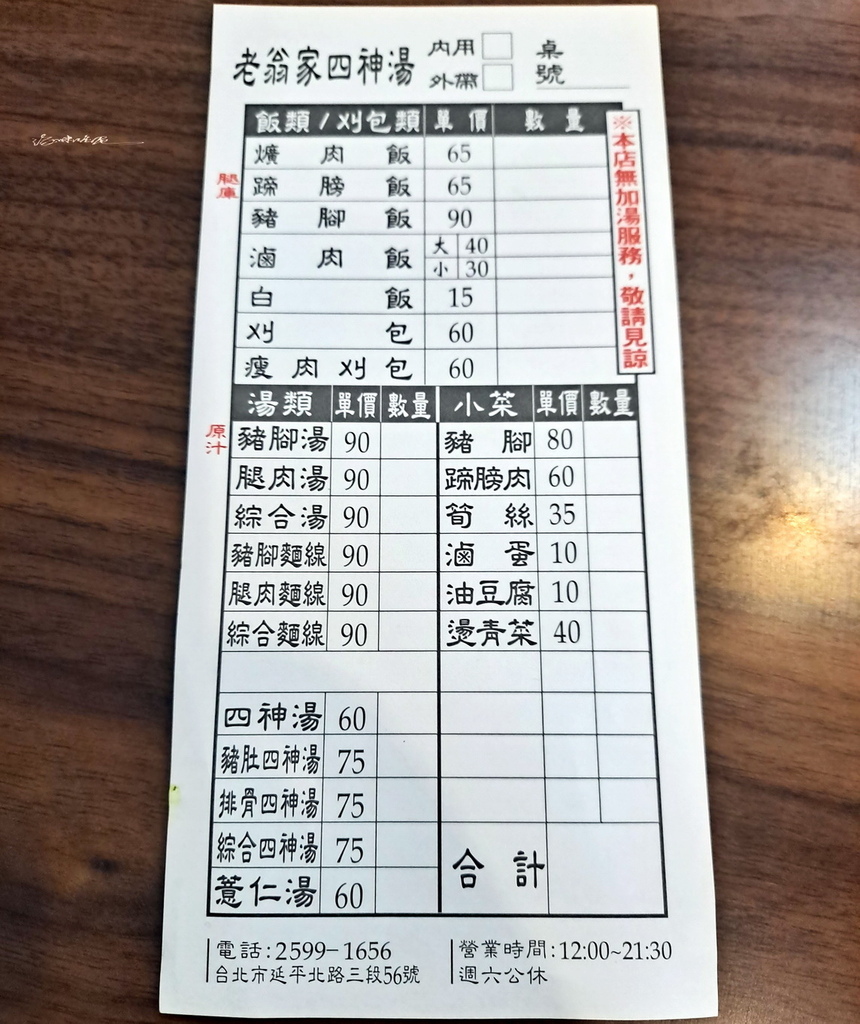 老翁家四神湯 內用 桌
外帶 號
飯類/刈包類 單價 數量
※本店無加湯服務，敬請見諒
爌肉飯 65
腿庫
蹄膀飯 65
豬腳飯 90
滷肉飯 大 40
小 30
白飯 15
刈包 60
瘦肉刈包 60
湯類 單價 數量 小菜 單價 數量
原汁
豬腳湯 90 豬腳 80
腿肉湯 90 蹄膀肉 60
綜合湯 90 筍絲 35
豬腳麵線 90 滷蛋 10
腿肉麵線 90 油豆腐 10
綜合麵線 90 燙青菜 40
四神湯 60
豬肚四神湯 75
排骨四神湯 75
綜合四神湯 75 合計
薏仁湯 60
電話:2599-1656 營業時間:12:00~21:30
台北市延平北路三段56號 週六公休